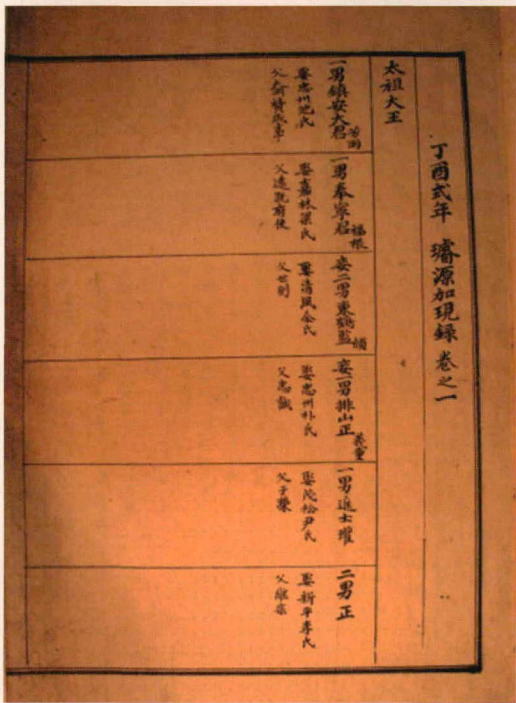 丁酉式年 璿源加現錄 卷之一
太祖大王
一男鎮安大君 芳雨
娶忠州池氏
父
一男奉寧君 福根
娶嘉林氏
父府使
妾二男東監
娶清風金氏
父世
妾一男排山正 義重
娶忠州朴氏
父忠誠
一男進士
娶茂松尹氏
父子榮
二男正
娶新平李氏
父繼宗